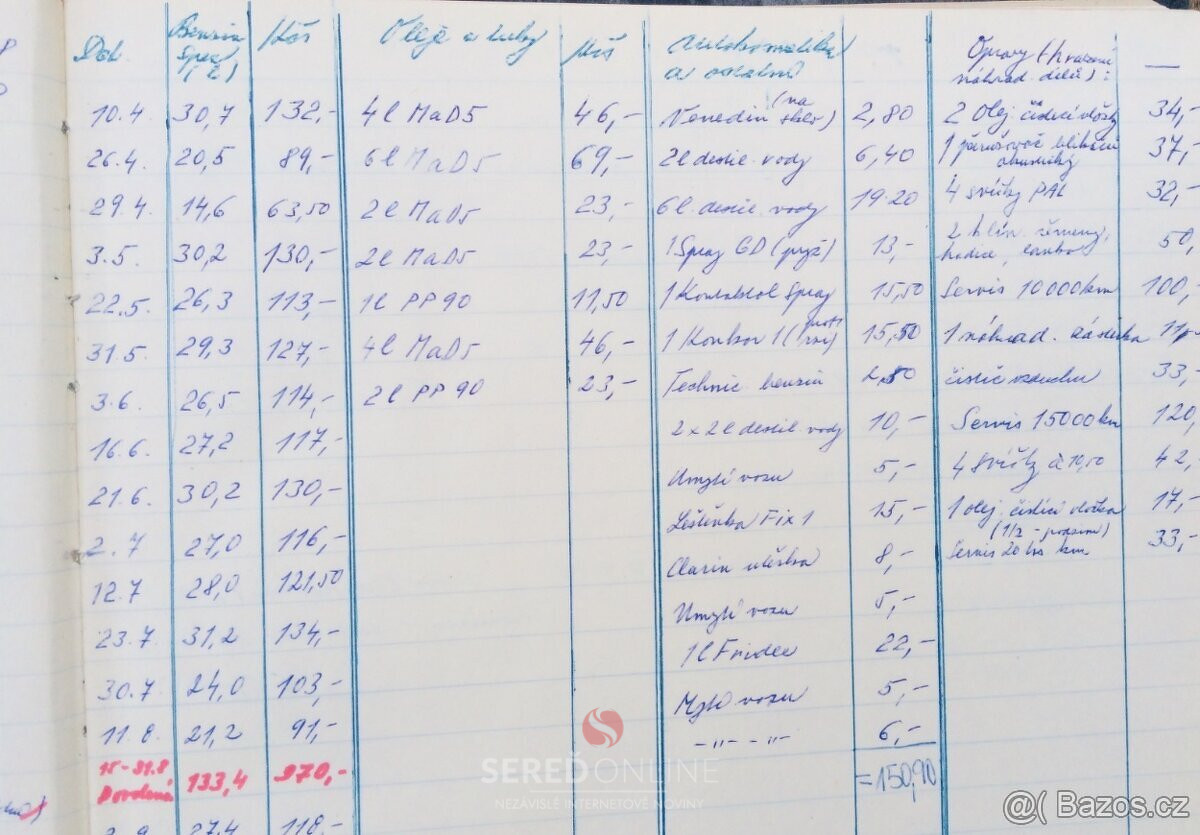 Dat. Benzin Spec. (L) Kčs Oleje a tuby Kčs Autokosmetika a ostatní Opravy (hrazení náhrad. dílů): —
10.4 30,7 132,- 4l MaD5 46,- (na sklo) 2,80 2 Olej. čistící vložky 34,-
26.4. 20,5 89,- 6l MaD5 69,- 2l destil. vody 6,40 1 37,-
29.4. 14,6 63,50 2l MaD5 23,- 6l. destil. vody 19.20 4 svíčky PAL 32,-
3.5. 30,2 130,- 2l MaD5 23,- 1 Spray GD (pryž) 13,- 2 klín. řemeny, hadice, 50,
22.5. 26,3 113,- 1l PP 90 11,50 1 Kontaktol Spray 15,50 Servis 10 000 km 100,-
31.5. 29,3 127,- 4l MaD5 46,- 1 Konkor 1 (proti rzi) 15,50 1 náhrad.
3.6. 26,5 114,- 2l PP 90 23,- Technic. benzin 2,80 čistič vzduchu 33,-
16.6. 27,2 117,- 2x2l destil. vody 10,- Servis 15000 km 120,
21.6. 30,2 130,- Umytí vozu 5,- 4 Svíčky à 10,50 42,-
2.7 27,0 116,- Leštěnka Fix 1 15,- 1 olej. čistící vložka 17,-
12.7 28,0 121,50 Clarin utěrka 8,- (1/2 - podzim) Servis 20 tis km 33,-
23.7. 31,2 134,- Umytí vozu 5,-
30.7 24,0 103,- 1l Fridex 22,-
11.8. 21,2 91,- Mytí vozu 5,-
-"- -"- 6,-
15-31.8. Dovolená 133,4 970,- =150,90
27,4 118,-
SEREĎONLINE
NEZÁVISLÉ INTERNETOVÉ NOVINY
@( Bazos.cz